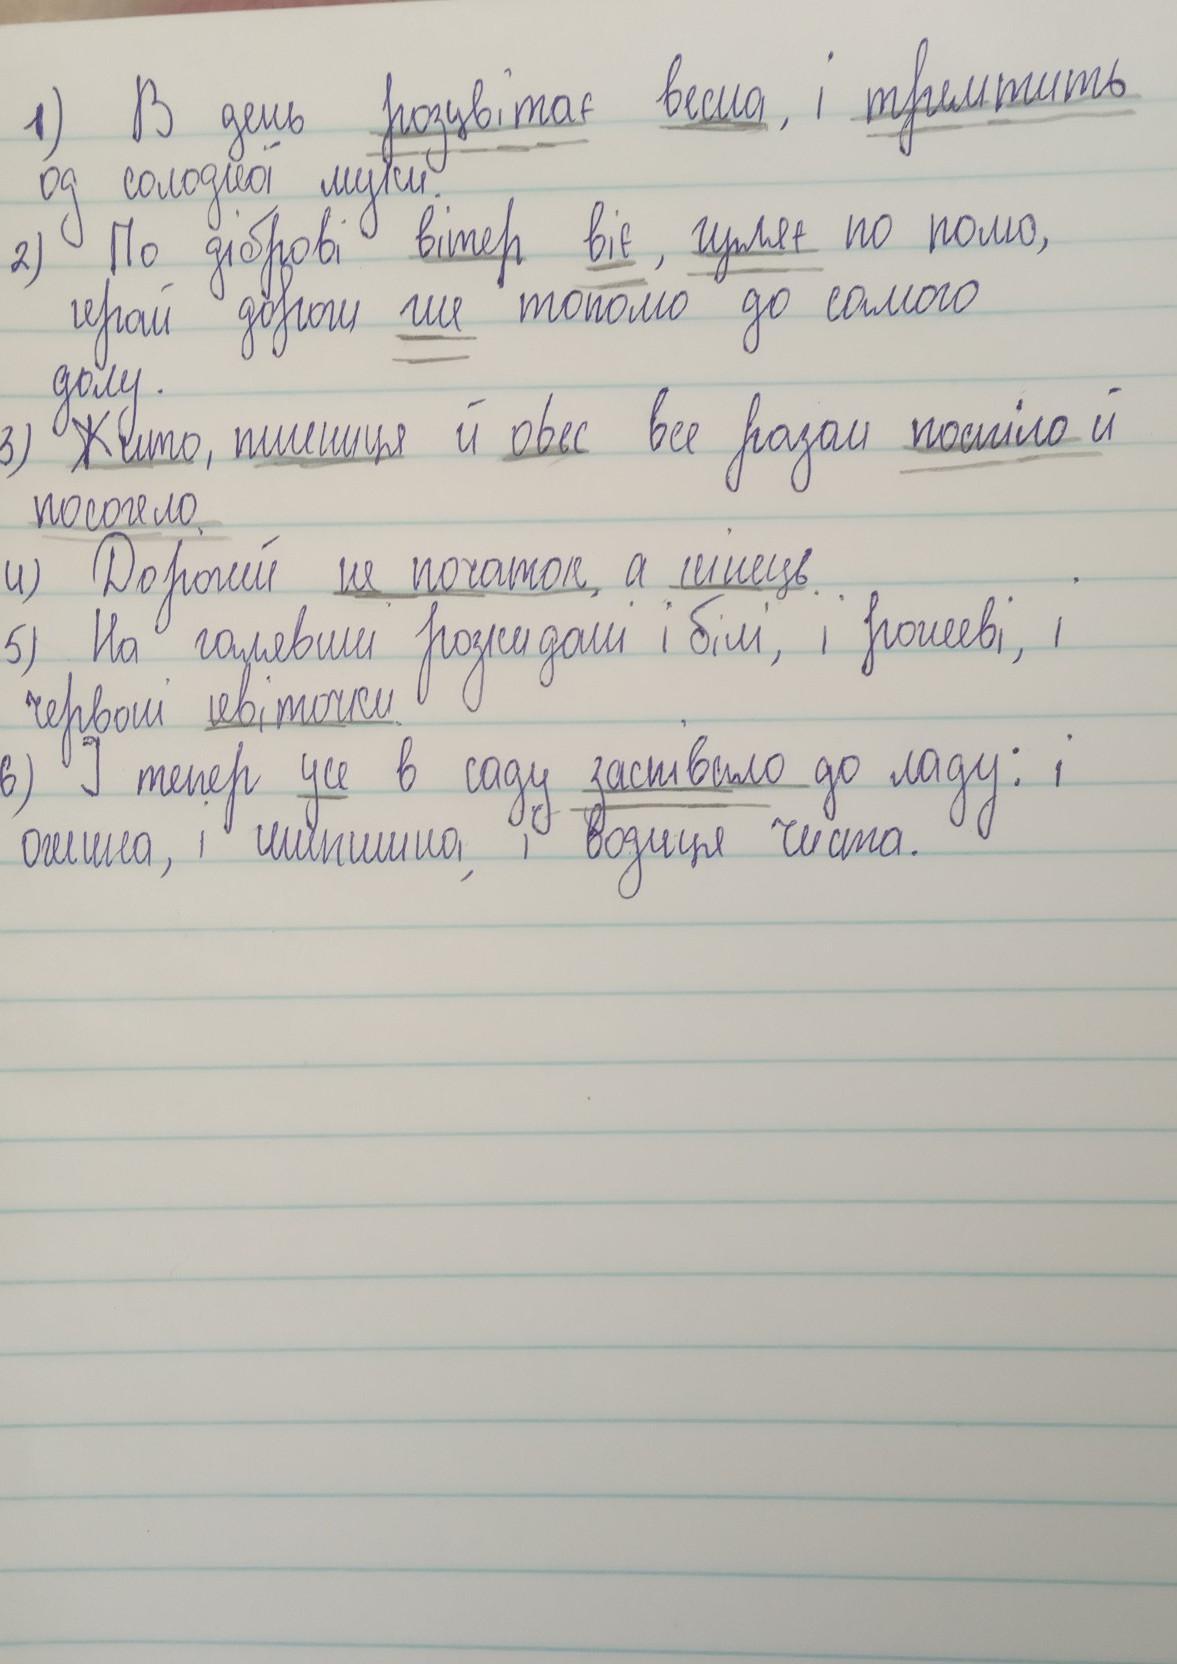 1) В день розцвітає весна, і тремтить
од солодкої муки.
2) По діброві вітер віє, гуляє по полю,
край дороги гне тополю до самого
долу.
3) Жито, пшениця й овес все разом поспіло й
посохло.
4) Дорогий не початок, а кінець.
5) На галявині розкидані і білі, і рожеві, і
червоні квіточки.
6) І тепер усе в саду заспівало до ладу: і
ожина, і шипшина, і водиця чиста.